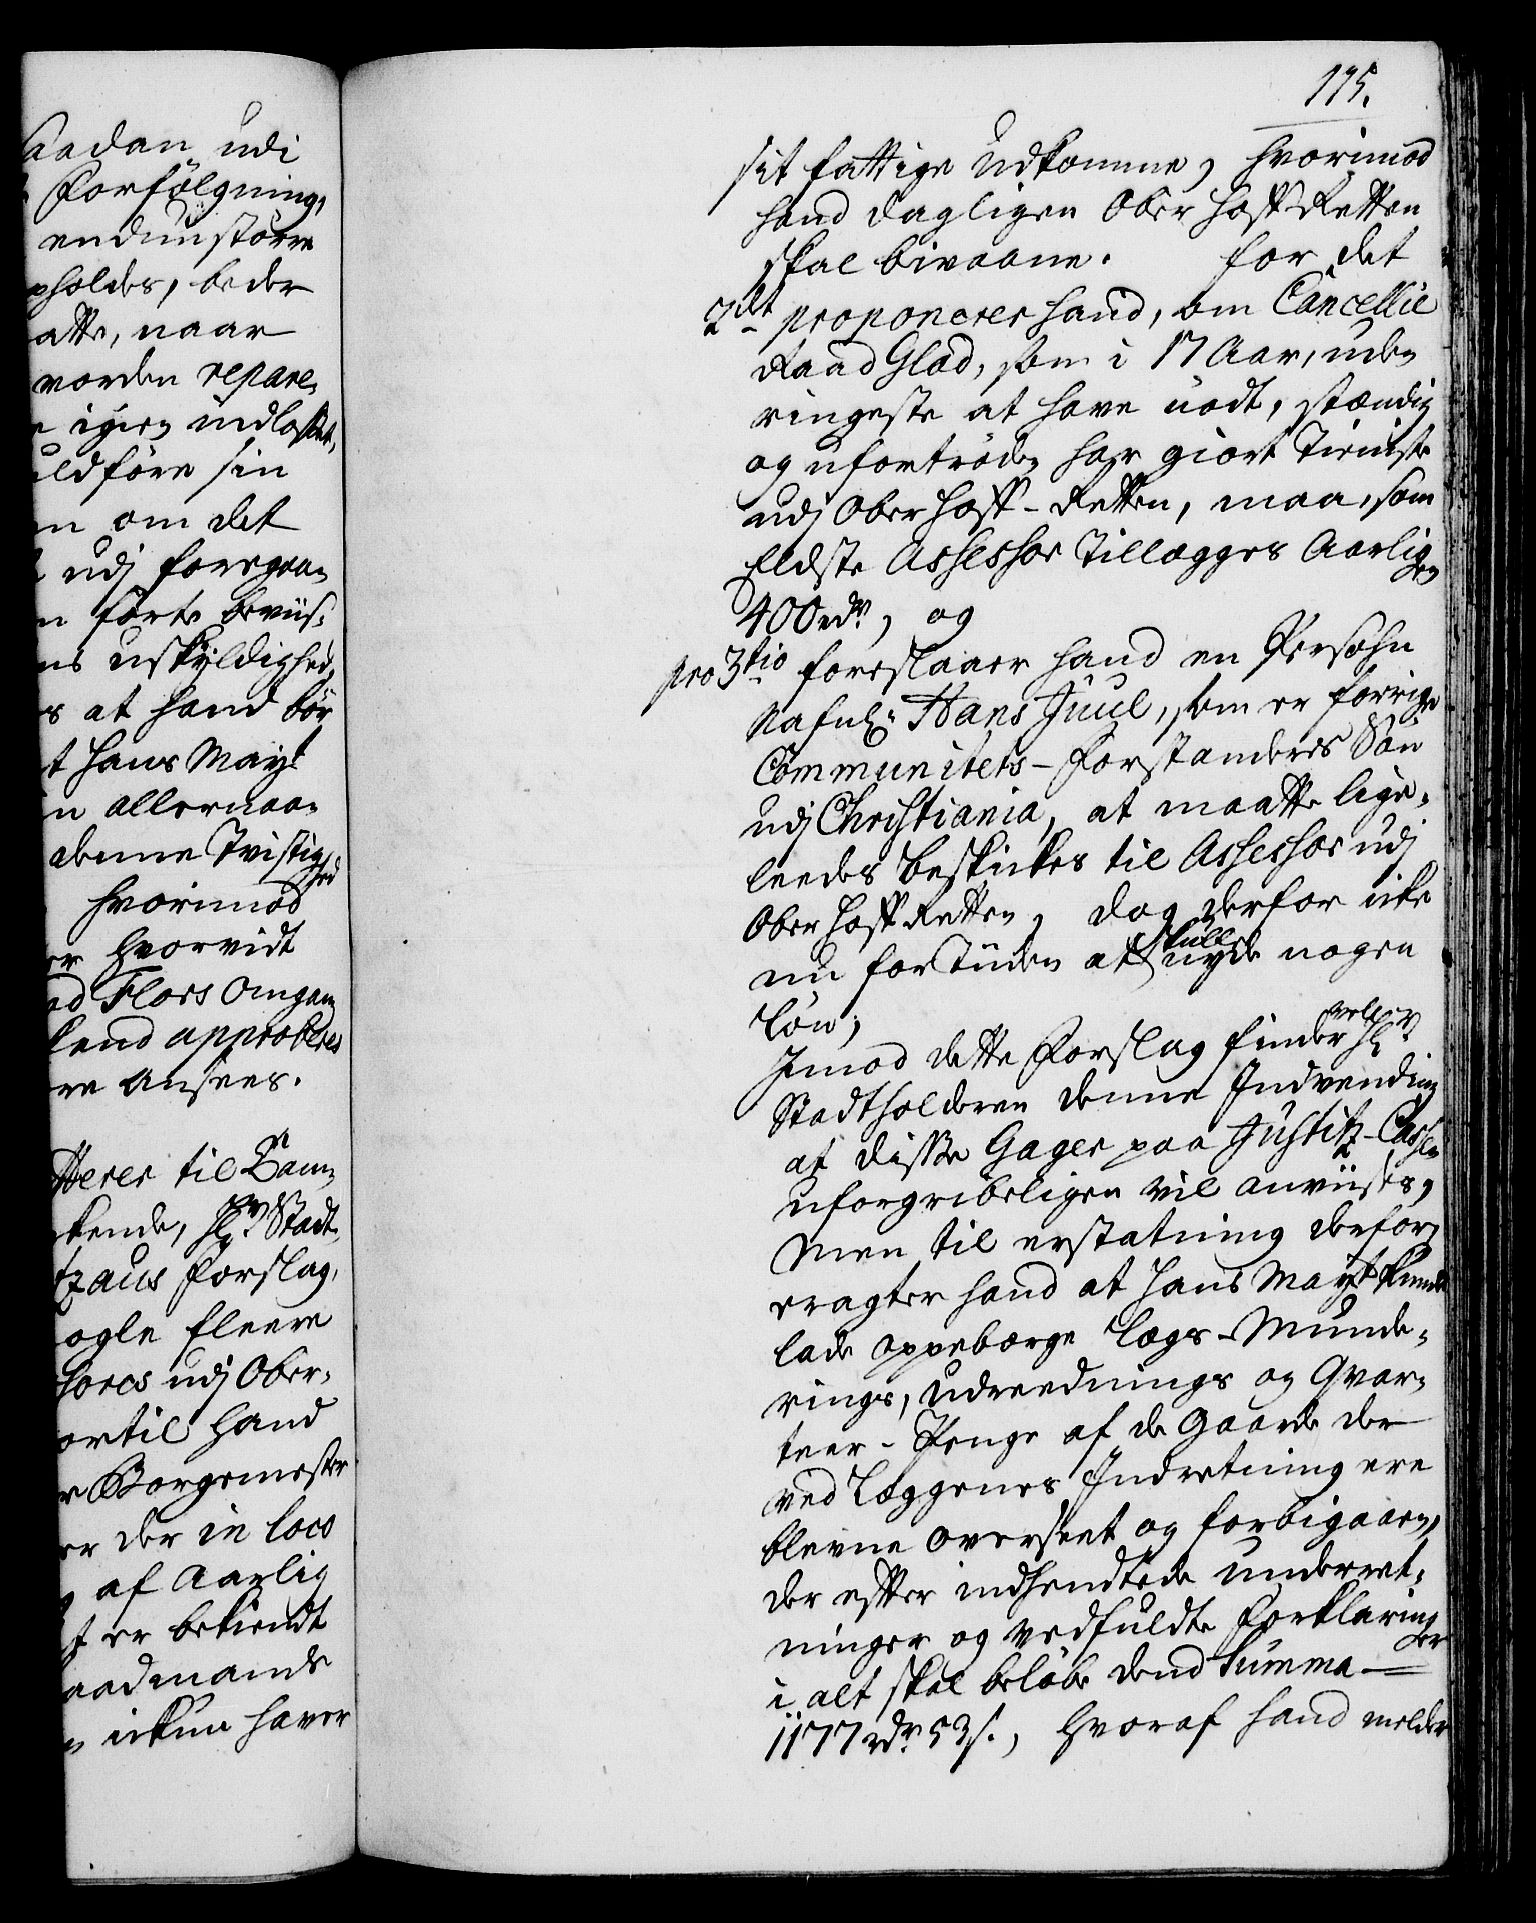 aadan udi
Forfölgning,
endnu större
pholdes, beder
atte, naar
vorden repare-
igien indløst,
uldföre sin
n om det
udj foregaa-
n førte beviis-
ns uskyldighed,
s at hand bör
t Hans Mayt
n allernaa-
denne Tvistig
hed
hvorimod
er hvorvidt
ad Flors Omgan
kend approberes
re ansees.
tterer til Cam-
kende, Hr Stadt-
tzaus Forslag,
ogle fleere
sores udj Ober-
ortil hand
r Borgemester
er der in loco
af Aarlig
t er bekiendt
aadmands
n ickun haver
175.
sit fattige Udkomme, hvorimod
hand dagligen Ober Hoff Retten
skal bivaane. For det
2det proponerer hand, om Cancellie
Raad Glad, som i 17 Aar, uden
ringeste at have nødt, stændig
og ufortrøden har giort Tieniste
udj Ober Hoff-Retten, maa, som
Eldste Assessor Tillægges Aarlig
en
400 rdr, og
pro 3tio foreslaaer hand en Persohn
Nafnl. Hans Juul, som er forrige
Communitets-Forstanderes Søn
udj Christiania, at maatte lige-
leedes beskickes til Assessor udj
Ober Hoff Retten, dog derfor icke
nu for Tiiden at skulle nyde nogen
Løn;
Imod dette Forslag finder vel Hr
Stadtholderen denne Indvending
at disse Gager paa Justitz-Cassen
uforgribeligen vil anviises,
Men til erstatning derfor
eragter hand at Hans Mayt kunde
lade oppebærge Lægs-Munde-
rings, Udreednings og Qvar-
teer-Penge af de Gaarde der
ved Læggenes Indretning ere
blevne overseet og forbigaaen,
der efter indhendtede underret-
ninger og vedfuldte Forklaring
er
i alt skal beløbe dend Summa
1177 rdr 53 s., hvoraf hand melder